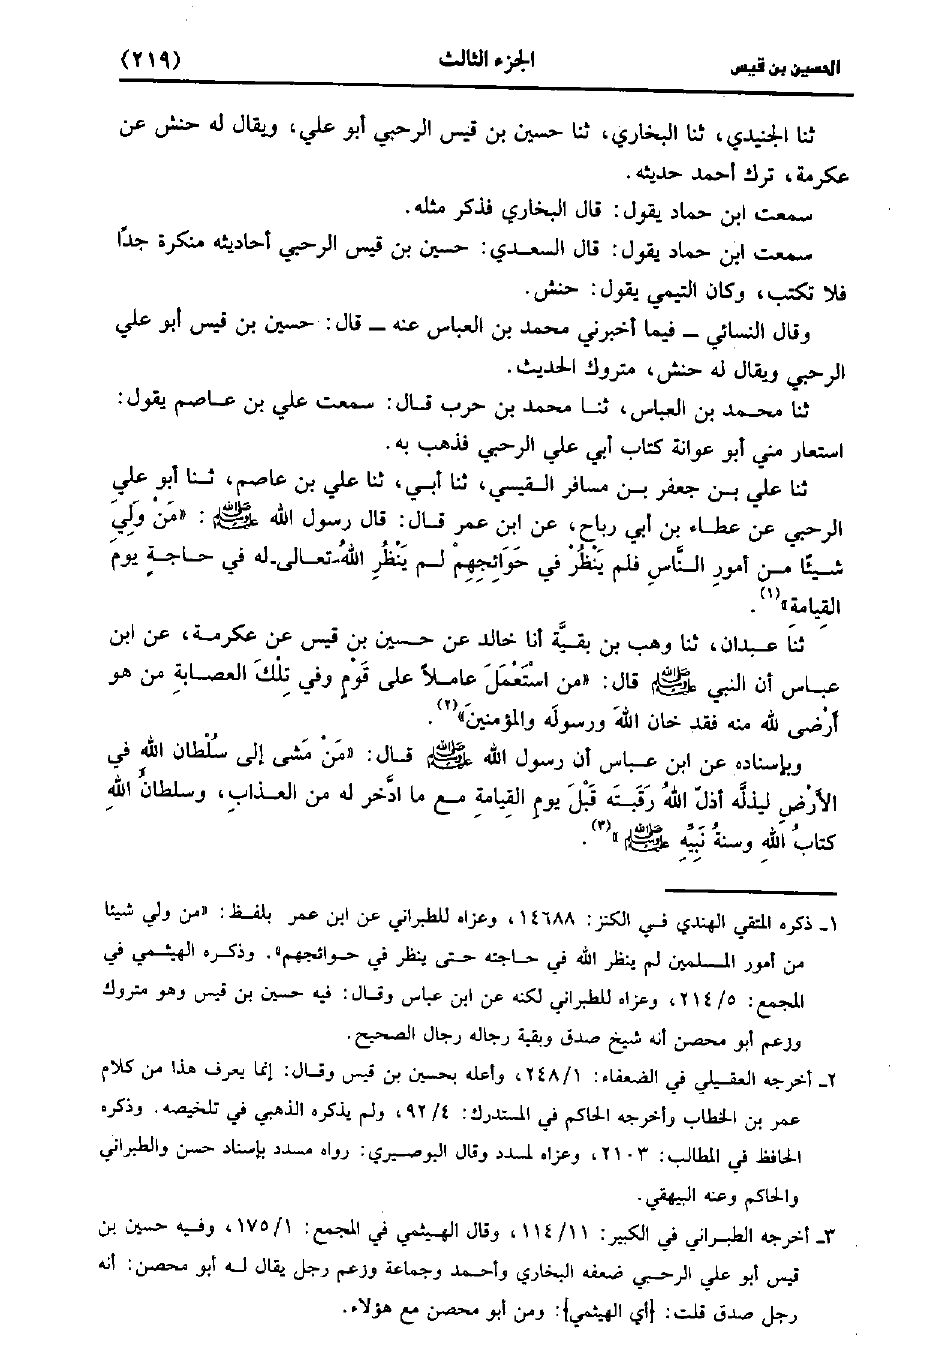 الحسين بن قيس الجزء الثالث (٢١٩)
ثنا الجنيدي، ثنا البخاري، ثنا حسين بن قيس الرحبي أبو علي، ويقال له حنش عن
عكرمة، ترك أحمد حديثه.
سمعت ابن حماد يقول: قال البخاري فذكر مثله.
سمعت ابن حماد يقول: قال السعدي: حسين بن قيس الرحبي أحاديثه منكرة جدًا
فلا تكتب، وكان التيمي يقول: حنش.
وقال النسائي ــ فيما أخبرني محمد بن العباس عنه ــ قال: حسين بن قيس أبو علي
الرحبي ويقال له حنش، متروك الحديث.
ثنا محمد بن العباس، ثنا محمد بن حرب قال: سمعت علي بن عاصم يقول:
استعار مني أبو عوانة كتاب أبي علي الرحبي فذهب به.
ثنا علي بن جعفر بن مسافر القيسي، ثنا أبي، ثنا علي بن عاصم، ثنا أبو علي
الرحبي عن عطاء بن أبي رباح، عن ابن عمر قال: قال رسول الله ﷺ: «مَنْ وَلِيَ
شيئًا من أمورِ النَّاسِ فلم يَنْظُرْ في حَوَائِجِهِمْ لم يَنْظُرِ اللهُ-تعالى-له في حاجةٍ يوم
القِيامَةِ»(١).
ثنا عبدان، ثنا وهب بن بقيَّة أنا خالد عن حسين بن قيس عن عكرمة، عن ابن
عباس أن النبي ﷺ قال: «من اسْتَعْمَلَ عاملاً على قَوْمٍ وفي تِلْكَ العصابةِ من هو
أرْضى لله منه فقد خان اللهَ ورسولَه والمؤمنينَ»(٢).
وبإسناده عن ابن عباس أن رسول الله ﷺ قال: «مَنْ مَشى إلى سُلْطان اللهِ في
الأرْضِ ليذلَّه أذلّ اللهُ رَقَبَتَه قَبْلَ يومِ القيامةِ مع ما ادَّخر له من العذابِ، وسلطانُ اللهِ
كتابُ اللهِ وسنةُ نَبِيِّهِ ﷺ»(٣).
١ـ ذكره المتقي الهندي في الكنز: ١٤٦٨٨، وعزاه للطبراني عن ابن عمر بلفظ: «من ولي شيئا
من أمور المسلمين لم ينظر الله في حاجته حتى ينظر في حوائجهم». وذكره الهيثمي في
المجمع: ٢١٤/٥، وعزاه للطبراني لكنه عن ابن عباس وقال: فيه حسين بن قيس وهو متروك
وزعم أبو محصن أنه شيخ صدق وبقية رجاله رجال الصحيح.
٢ـ أخرجه العقيلي في الضعفاء: ٢٤٨/١، وأعله بحسين بن قيس وقال: إنما يعرف هذا من كلام
عمر بن الخطاب وأخرجه الحاكم في المستدرك: ٩٢/٤، ولم يذكره الذهبي في تلخيصه. وذكره
الحافظ في المطالب: ٢١٠٣، وعزاه لمسدد وقال البوصيري: رواه مسدد بإسناد حسن والطبراني
والحاكم وعنه البيهقي.
٣ـ أخرجه الطبراني في الكبير: ١١٤/١١، وقال الهيثمي في المجمع: ١٧٥/١، وفيه حسين بن
قيس أبو علي الرحبي ضعفه البخاري وأحمد وجماعة وزعم رجل يقال له أبو محصن: أنه
رجل صدق قلت: {أي الهيثمي}: ومن أبو محصن مع هؤلاء.